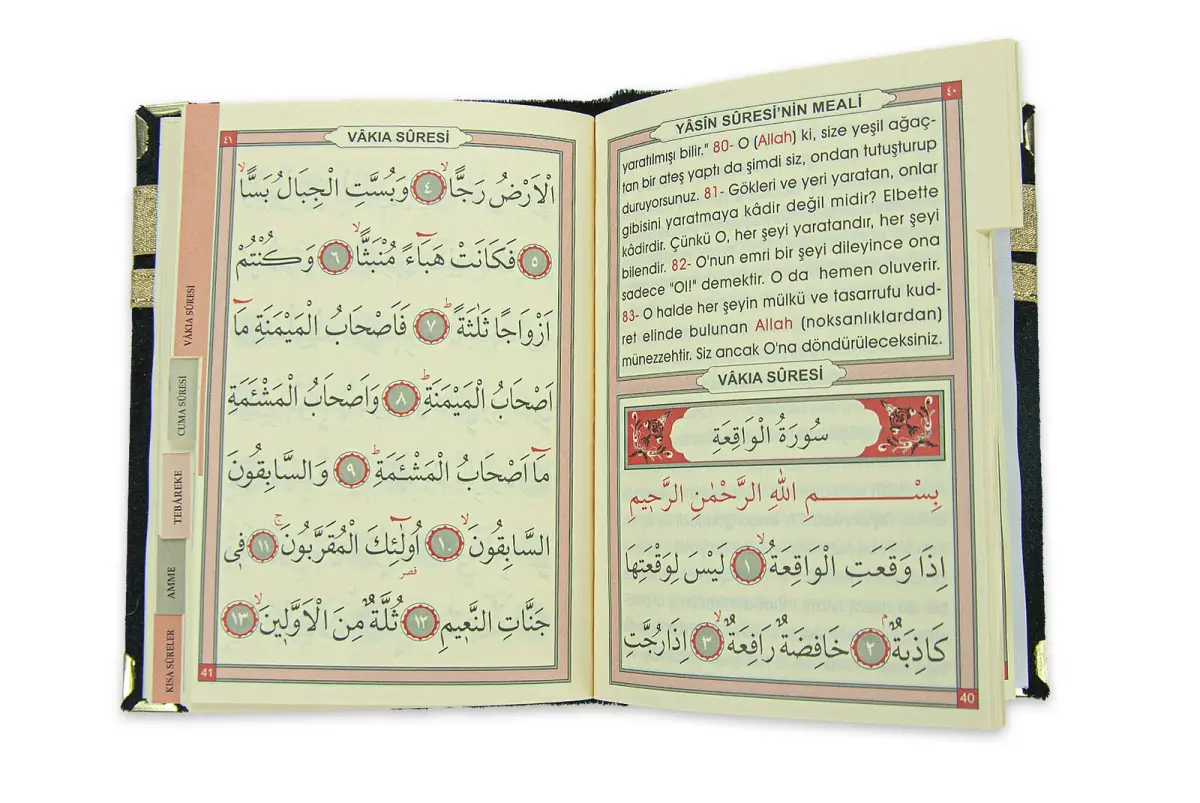 ٤٠
YÂSÎN SÛRESİ'NİN MEALİ
yaratılmışı bilir." 80- O (Allah) ki, size yeşil ağaç-
tan bir ateş yaptı da şimdi siz, ondan tutuşturup
duruyorsunuz. 81- Gökleri ve yeri yaratan, onlar
gibisini yaratmaya kâdir değil midir? Elbette
kâdirdir. Çünkü O, her şeyi yaratandır, her şeyi
bilendir. 82- O'nun emri bir şeyi dileyince ona
sadece "Ol!" demektir. O da hemen oluverir.
83- O halde her şeyin mülkü ve tasarrufu kud-
ret elinde bulunan Allah (noksanlıklardan)
münezzehtir. Siz ancak O'na döndürüleceksiniz.
VÂKIA SÛRESİ
سُورَةُ الْوَاقِعَةِ
بِسْمِ اللّٰهِ الرَّحْمٰنِ الرَّحٖيمِ
اِذَا وَقَعَتِ الْوَاقِعَةُۙ ١ لَيْسَ لِوَقْعَتِهَا
كَاذِبَةٌۢ ٢ خَافِضَةٌ رَافِعَةٌۙ ٣ اِذَا رُجَّتِ
40
٤١
VÂKIA SÛRESİ
الْاَرْضُ رَجًّاۙ ٤ وَبُسَّتِ الْجِبَالُ بَسًّاۙ
٥ فَكَانَتْ هَبَٓاءً مُنْبَثًّاۙ ٦ وَكُنْتُمْ
اَزْوَاجًا ثَلٰثَةًۜ ٧ فَاَصْحَابُ الْمَيْمَنَةِ مَٓا
اَصْحَابُ الْمَيْمَنَةِۜ ٨ وَاَصْحَابُ الْمَشْـَٔمَةِ
مَٓا اَصْحَابُ الْمَشْـَٔمَةِۜ ٩ وَالسَّابِقُونَ
السَّابِقُونَۙ ١٠ اُولٰٓئِكَ الْمُقَرَّبُونَۚ ١١ فٖى
قصر
جَنَّاتِ النَّعٖيمِ ١٢ ثُلَّةٌ مِنَ الْاَوَّلٖينَۙ ١٣
41
VÂKIA SÛRESİ
CUMA SÛRESİ
TEBÂREKE
AMME
KISA SÛRELER